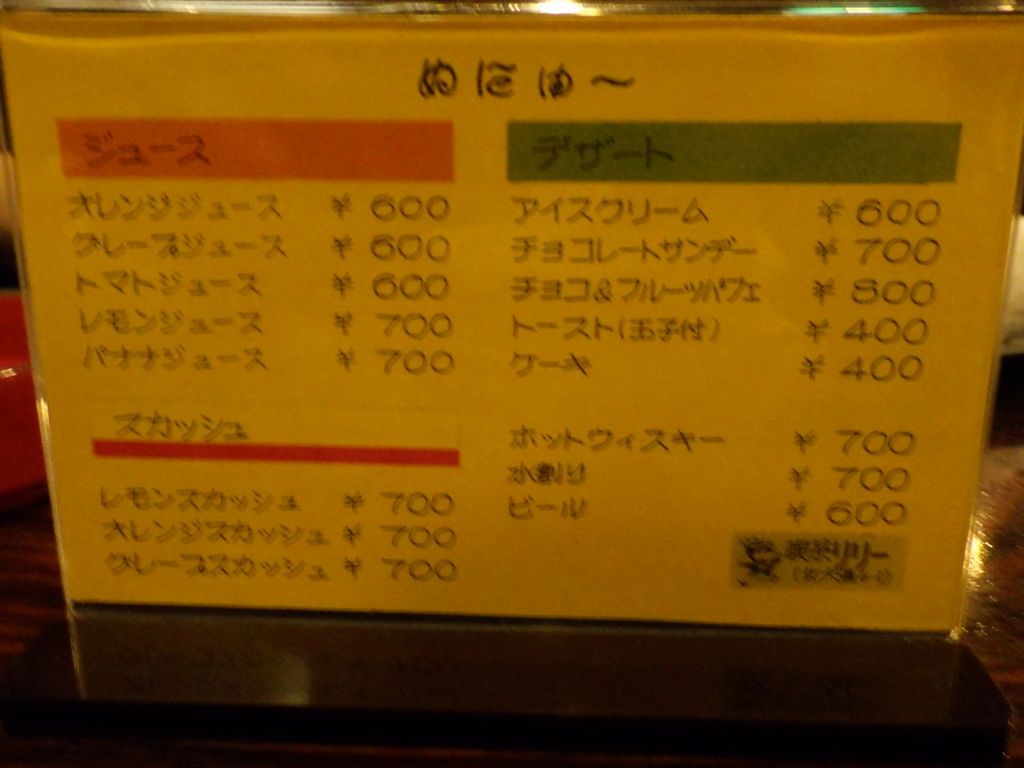 めにゅ〜
ジュース
オレンジジュース ¥600
グレープジュース ¥600
トマトジュース ¥600
レモンジュース ¥700
バナナジュース ¥700
スカッシュ
レモンスカッシュ ¥700
オレンジスカッシュ ¥700
グレープスカッシュ ¥700
デザート
アイスクリーム ¥600
チョコレートサンデー ¥700
チョコ&フルーツパフェ ¥800
トースト(玉子付) ¥400
ケーキ ¥400
ホットウィスキー ¥700
水割り ¥700
ビール ¥600
喫茶リリー